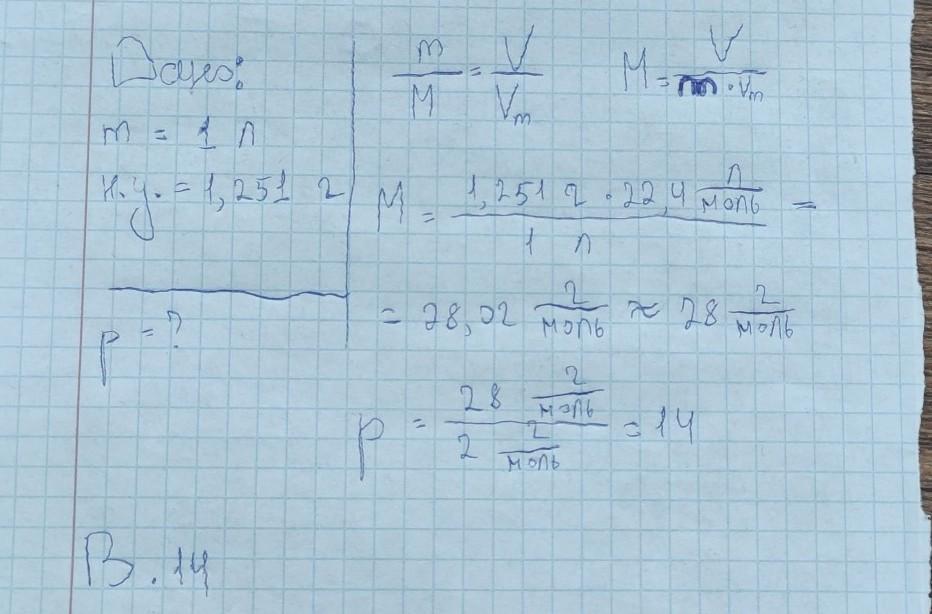 Дано:
m = 1 л
н.у. = 1,251 г
p = ?
m/M = V/Vm M = V/m·Vm
M = 1,251 г · 22,4 л/моль / 1 л =
= 28,02 г/моль ≈ 28 г/моль
p = 28 г/моль / 2 г/моль = 14
В. 14